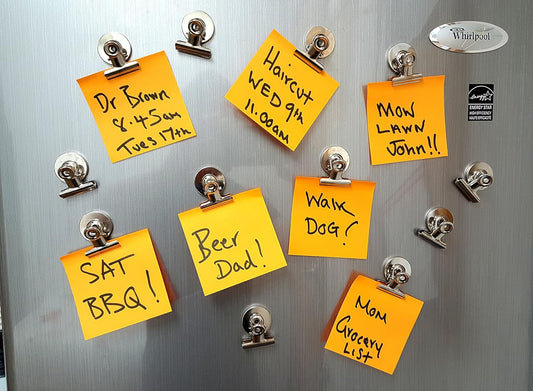 Whirlpool
ENERGY STAR
HIGH EFFICIENCY
HAUTE EFFICACITÉ
Dr Brown
8.45am
Tues 17th
Haircut
WED 9th
11.00am
MON
LAWN
John!!
SAT
BBQ!
Beer
Dad!
Walk
DOG!
Mom
Grocery
List